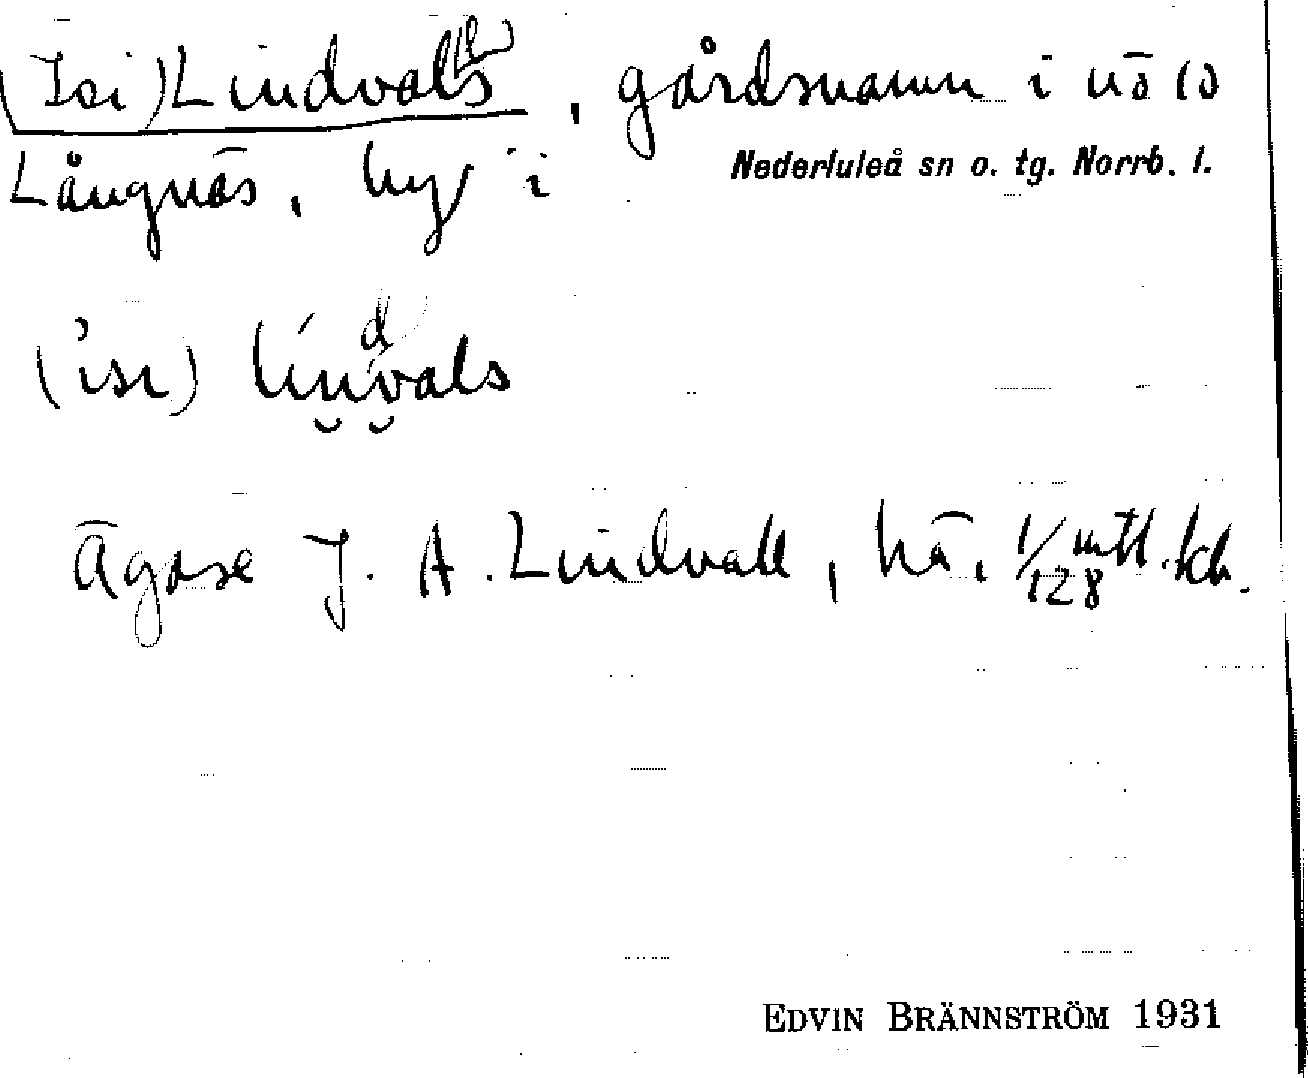 (Isi) Lindvalls, gårdsnamn i nö 10
Långnäs, by i Nederluleå sn o. tg. Norrb. l.
(ìsi) líndvals
Ägare J. A. Lindvall, hä, 1/128 mtl. sk.
EDVIN BRÄNNSTRÖM 1931